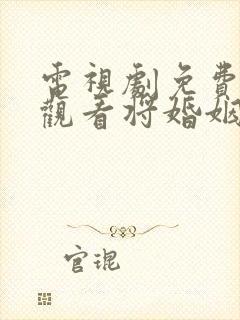 電視劇免費
觀看将婚姻
官琨